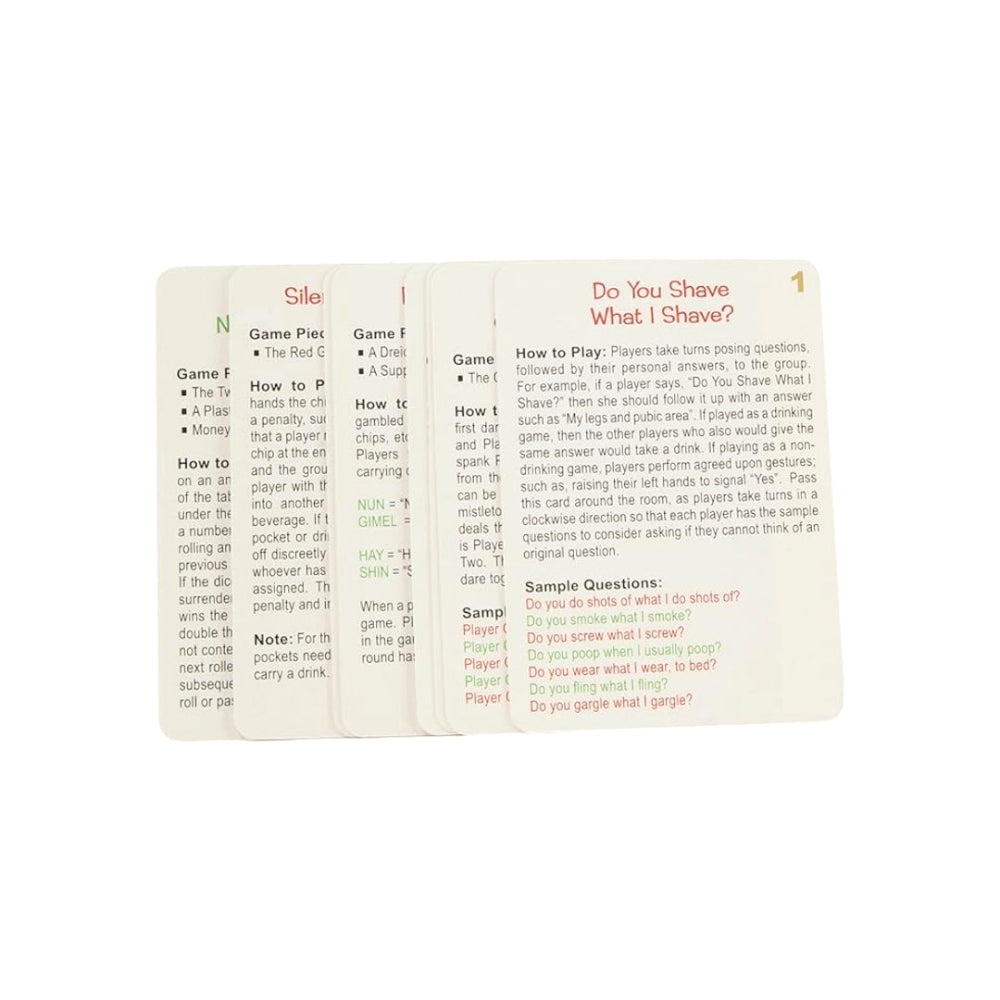 Game
The
A
Money
How to
on an
of the
under the
a number
rolling an
previous
If the
wins the
double
not
next
roll or
Game
The Red
How to
hands the
a penalty,
that a player
chip at the
and the
player with
into another
beverage. If
pocket or
off discreetly
whoever has
assigned.
penalty and
Note: For
pockets need
carry a drink.
Game
A
A
How to
gambled
chips,
Players
carrying
NUN =
GIMEL =
HAY =
SHIN =
When a
game.
in the
round
Game
The
How
first
and
spank
from
can be
deals
is
Two.
dare
Player
Player
Player
Player
Player
1
Do You Shave
What I Shave?
How to Play: Players take turns posing questions,
followed by their personal answers, to the group.
For example, if a player says, “Do You Shave What I
Shave?” then she should follow it up with an answer
such as “My legs and pubic area”. If played as a drinking
game, then the other players who also would give the
same answer would take a drink. If playing as a non-
drinking game, players perform agreed upon gestures;
such as, raising their left hands to signal “Yes”. Pass
this card around the room, as players take turns in a
clockwise direction so that each player has the sample
questions to consider asking if they cannot think of an
original question.
Sample Questions:
Do you do shots of what I do shots of?
Do you smoke what I smoke?
Do you screw what I screw?
Do you poop when I usually poop?
Do you wear what I wear, to bed?
Do you fling what I fling?
Do you gargle what I gargle?